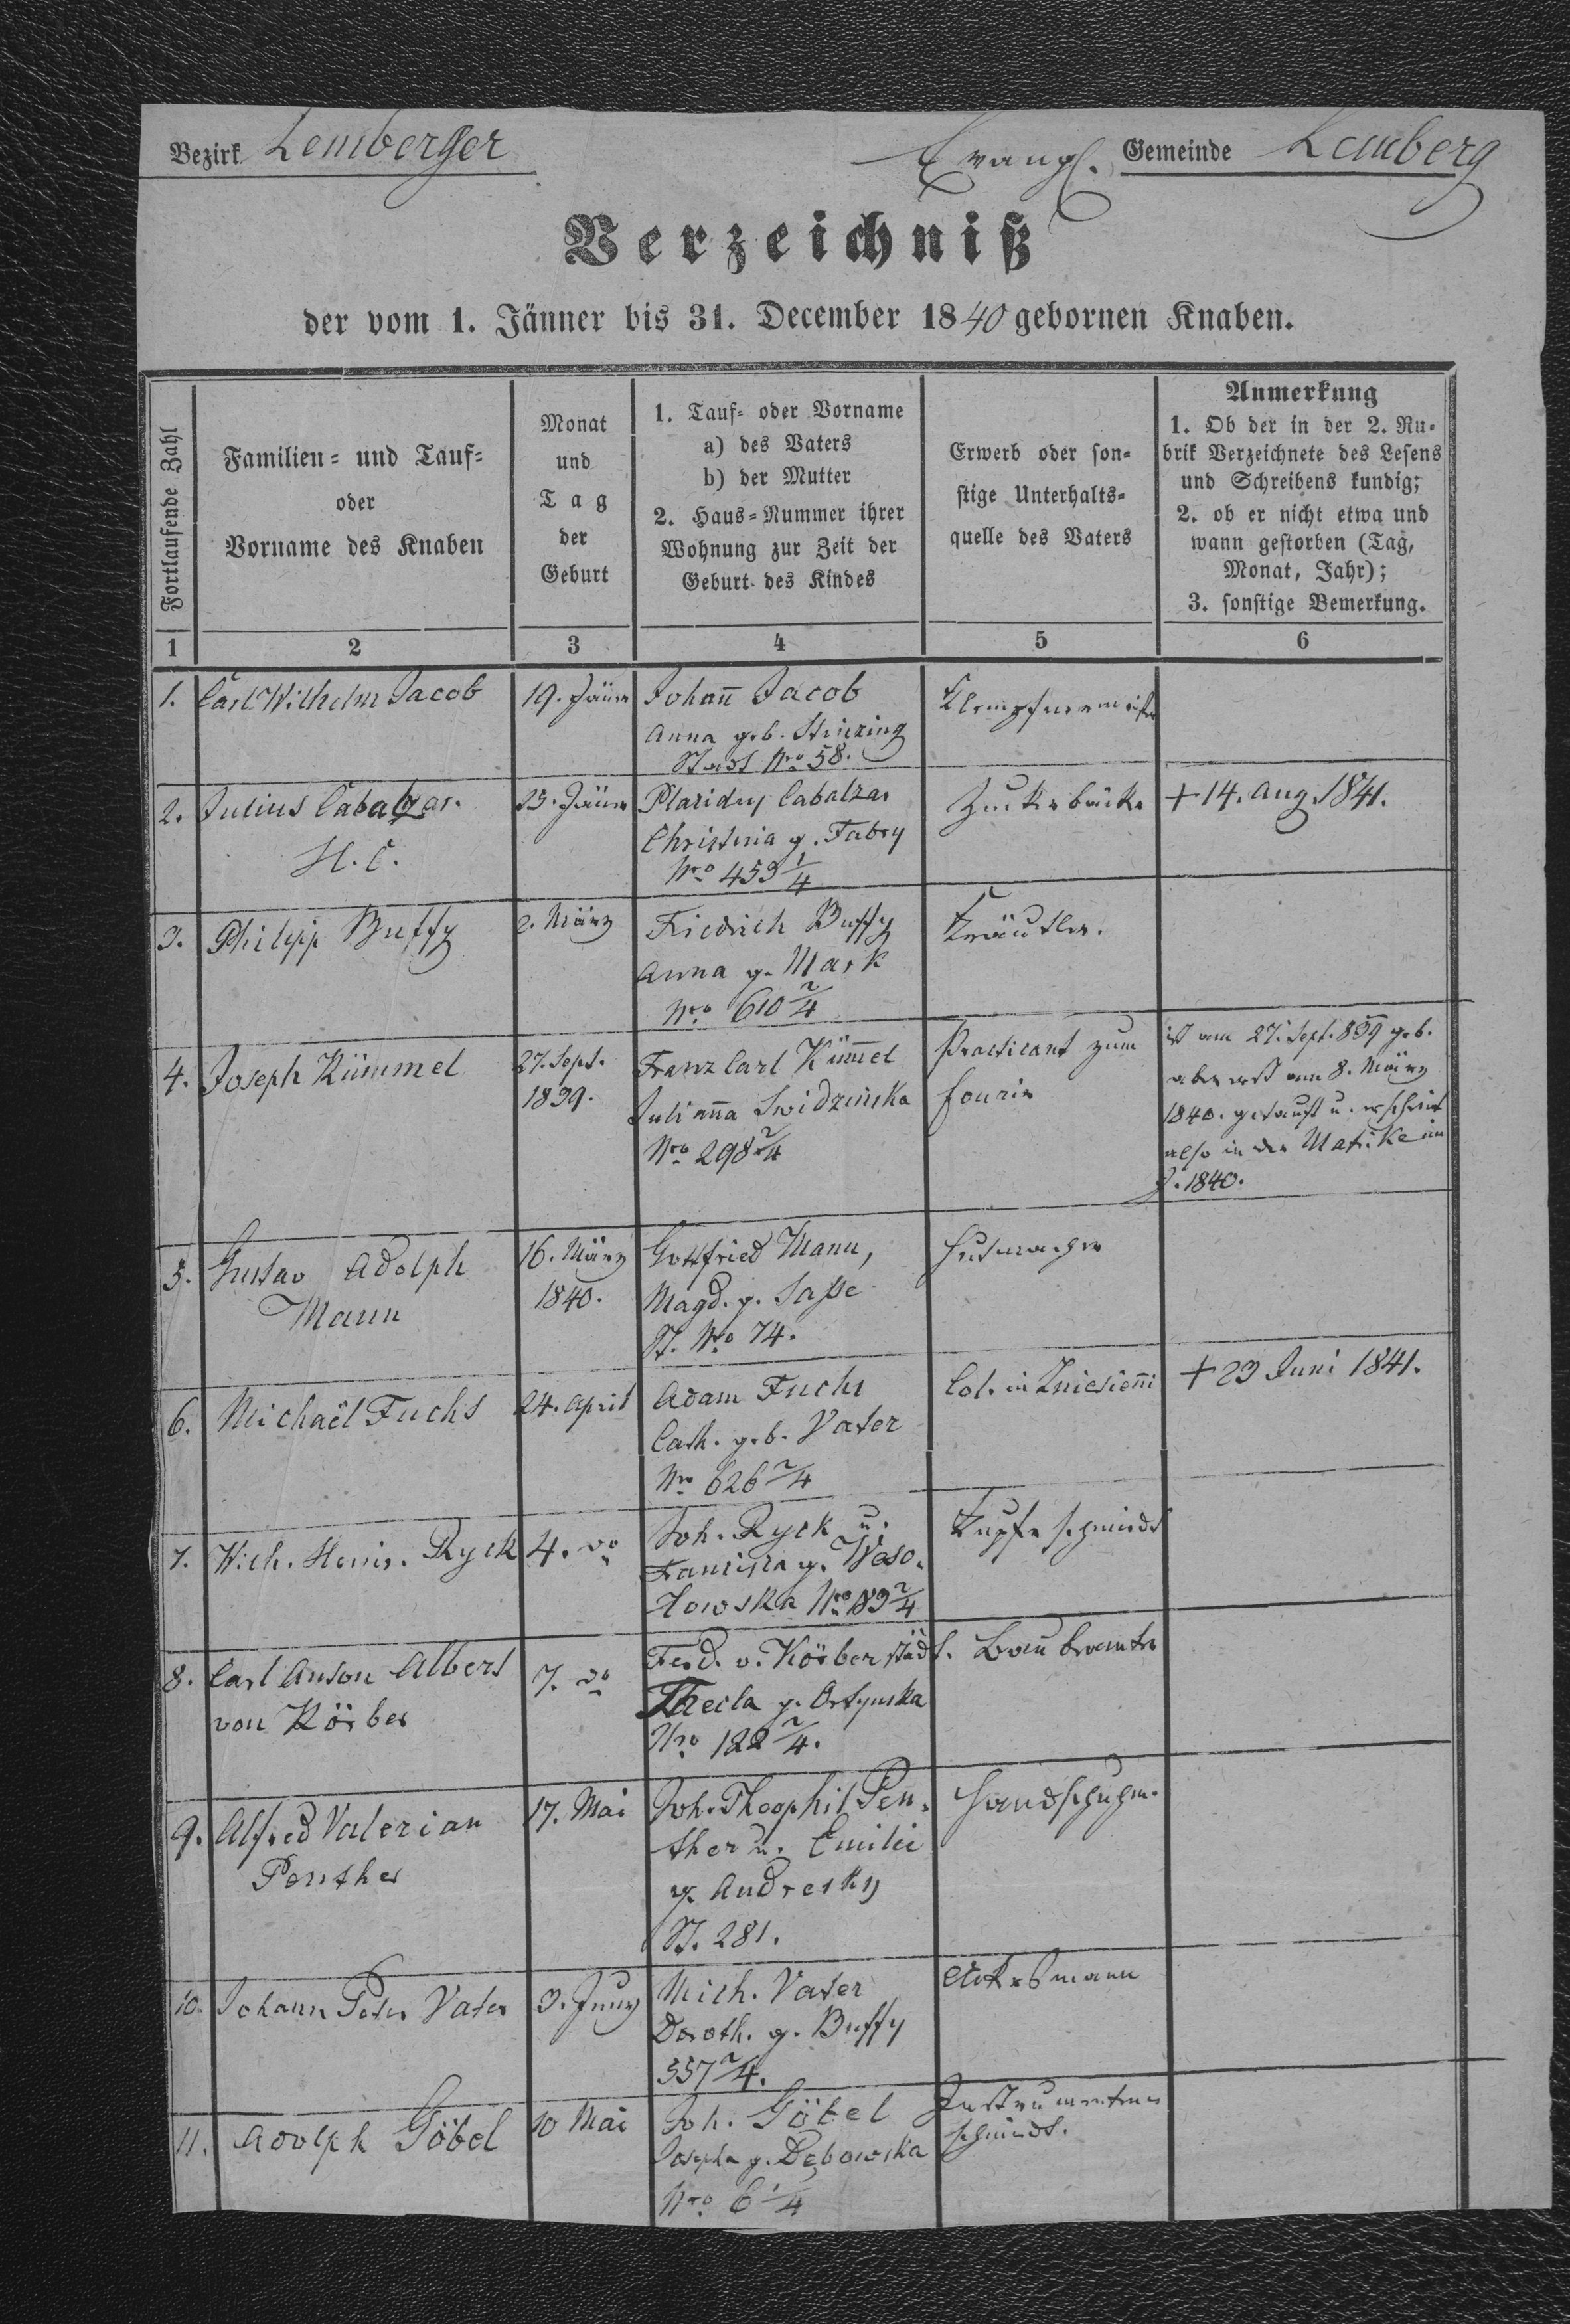 Bezirk Lemberger
Evangl. Gemeinde Lemberg
Verzeichniß
der vom 1. Jänner bis 31. December 1840 gebornen Knaben.
Fortlaufende Zahl
Familien- und Tauf-
oder
Vorname des Knaben
Monat
und
Tag
der
Geburt
1. Tauf- oder Vorname
a) des Vaters
b) der Mutter
2. Haus-Nummer ihrer
Wohnung zur Zeit der
Geburt des Kindes
Erwerb oder son-
stige Unterhalts-
quelle des Vaters
Anmerkung
1. Ob der in der 2. Ru-
brik Verzeichnete des Lesens
und Schreibens kundig;
2. ob er nicht etwa und
wann gestorben (Tag,
Monat, Jahr);
3. sonstige Bemerkung.
1 2 3 4 5 6
1. Carl Wilhelm Jacob
19. Jänn
Johañ Jacob
Anna geb.
Stadt Nro 58.
Klempfnermeister
2. Julius Cabalzar.
H. C.
Jänn
Cabalzar
Christina g. Fabry
Nro 459 1/4
Zuckerbäcker
+ 14. Aug. 1841.
3. Philipp Buffy
2. März
Friedrich Buffy
Anna g. Mark
Nro 610 2/4
Kräutler.
4. Joseph Kümmel
27. Sept.
1839.
Franz Carl Küm̃el
Juliaña Swidzinska
Nro 298 2/4
Practicant zum
Fourir
ist am 27. Sept. 839 geb.
aber erst am 8. März
1840. getauft u. erscheint
also in der Matrike im
J. 1840.
5. Gustav Adolph
Mann
16. März
1840.
Gottfried Mann,
Magd. g. Saße
St. Nro 74.
Hutmacher
6. Michaël Fuchs
24. April
Adam Fuchs
Cath. geb. Vater
Nro 626 2/4
Col. in Zniesieñi
+ 23 Juni 1841.
7. Wilh. Heinr. Ryck
4. do
Joh. Ryck u.
Francisca g. Weso-
łowska Nro 2/4
Kupferschmidt
8. Carl Anton Albert
von Körber
7. do
Ferd. v. Körber
Thecla g. Ortynska
Nro 122 2/4.
städt. Baubeamter
9. Alfred Valerian
Penther
17. Mai
Joh. Theophil Pen-
ther u. Emilie
g. Andresky
St. 281.
Handschuhm.
10. Johann Peter Vater
3. Juny
Mich. Vater
Doroth. g. Buffy
557 2/4.
Ackersmann
11. Adolph Göbel
10 Mai
Joh. Göbel
Josepha g. Dębowska
Nro 6 1/4
Instrumenten
schmidt.